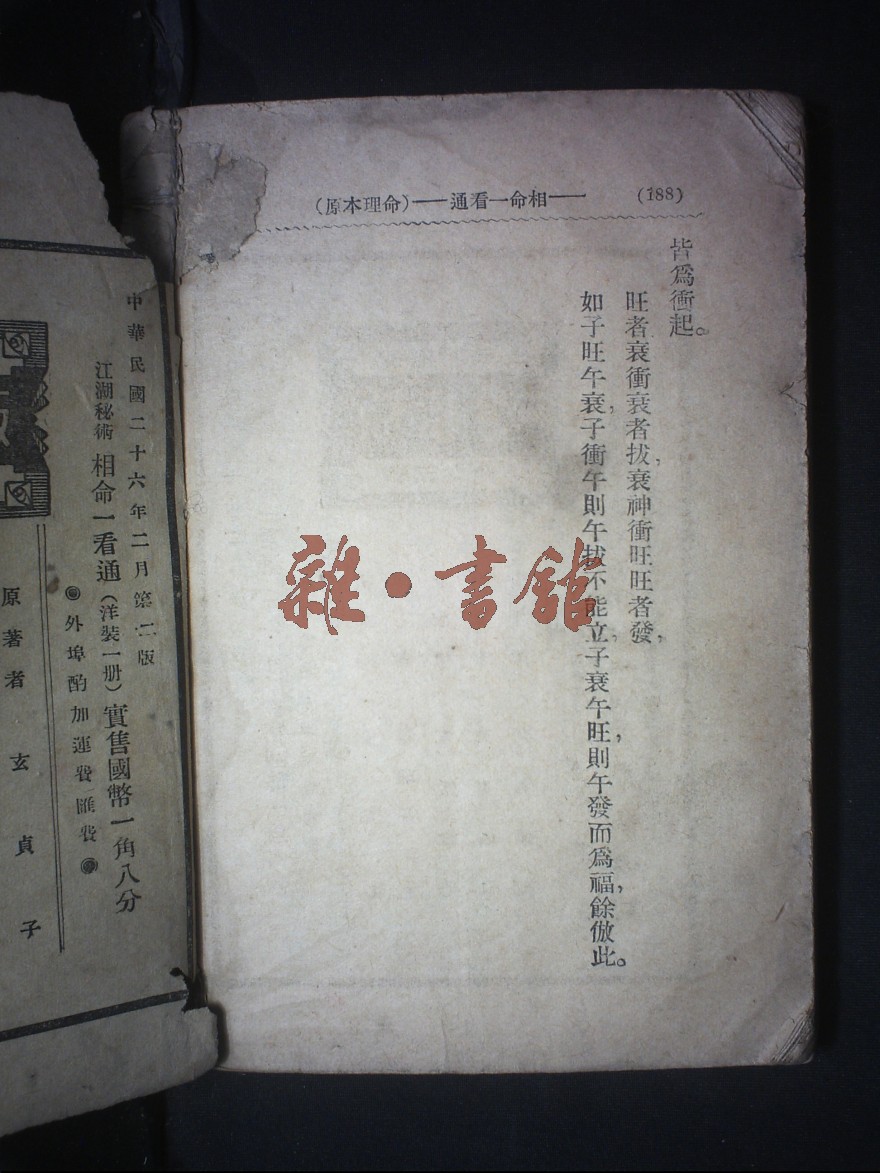 (188)
——相命一看通——(命理本原)
皆爲衝起。
旺者衰衝衰者拔，衰神衝旺旺者發，
如子旺午衰，子衝午則午拔不能立，子衰午旺，則午發而爲福，餘倣此。
雜·書館
中華民國二十六年二月第二版
江湖秘術 相命一看通（洋裝一册）實售國幣一角八分
◉外埠酌加運費匯費◉
原著者 玄貞子